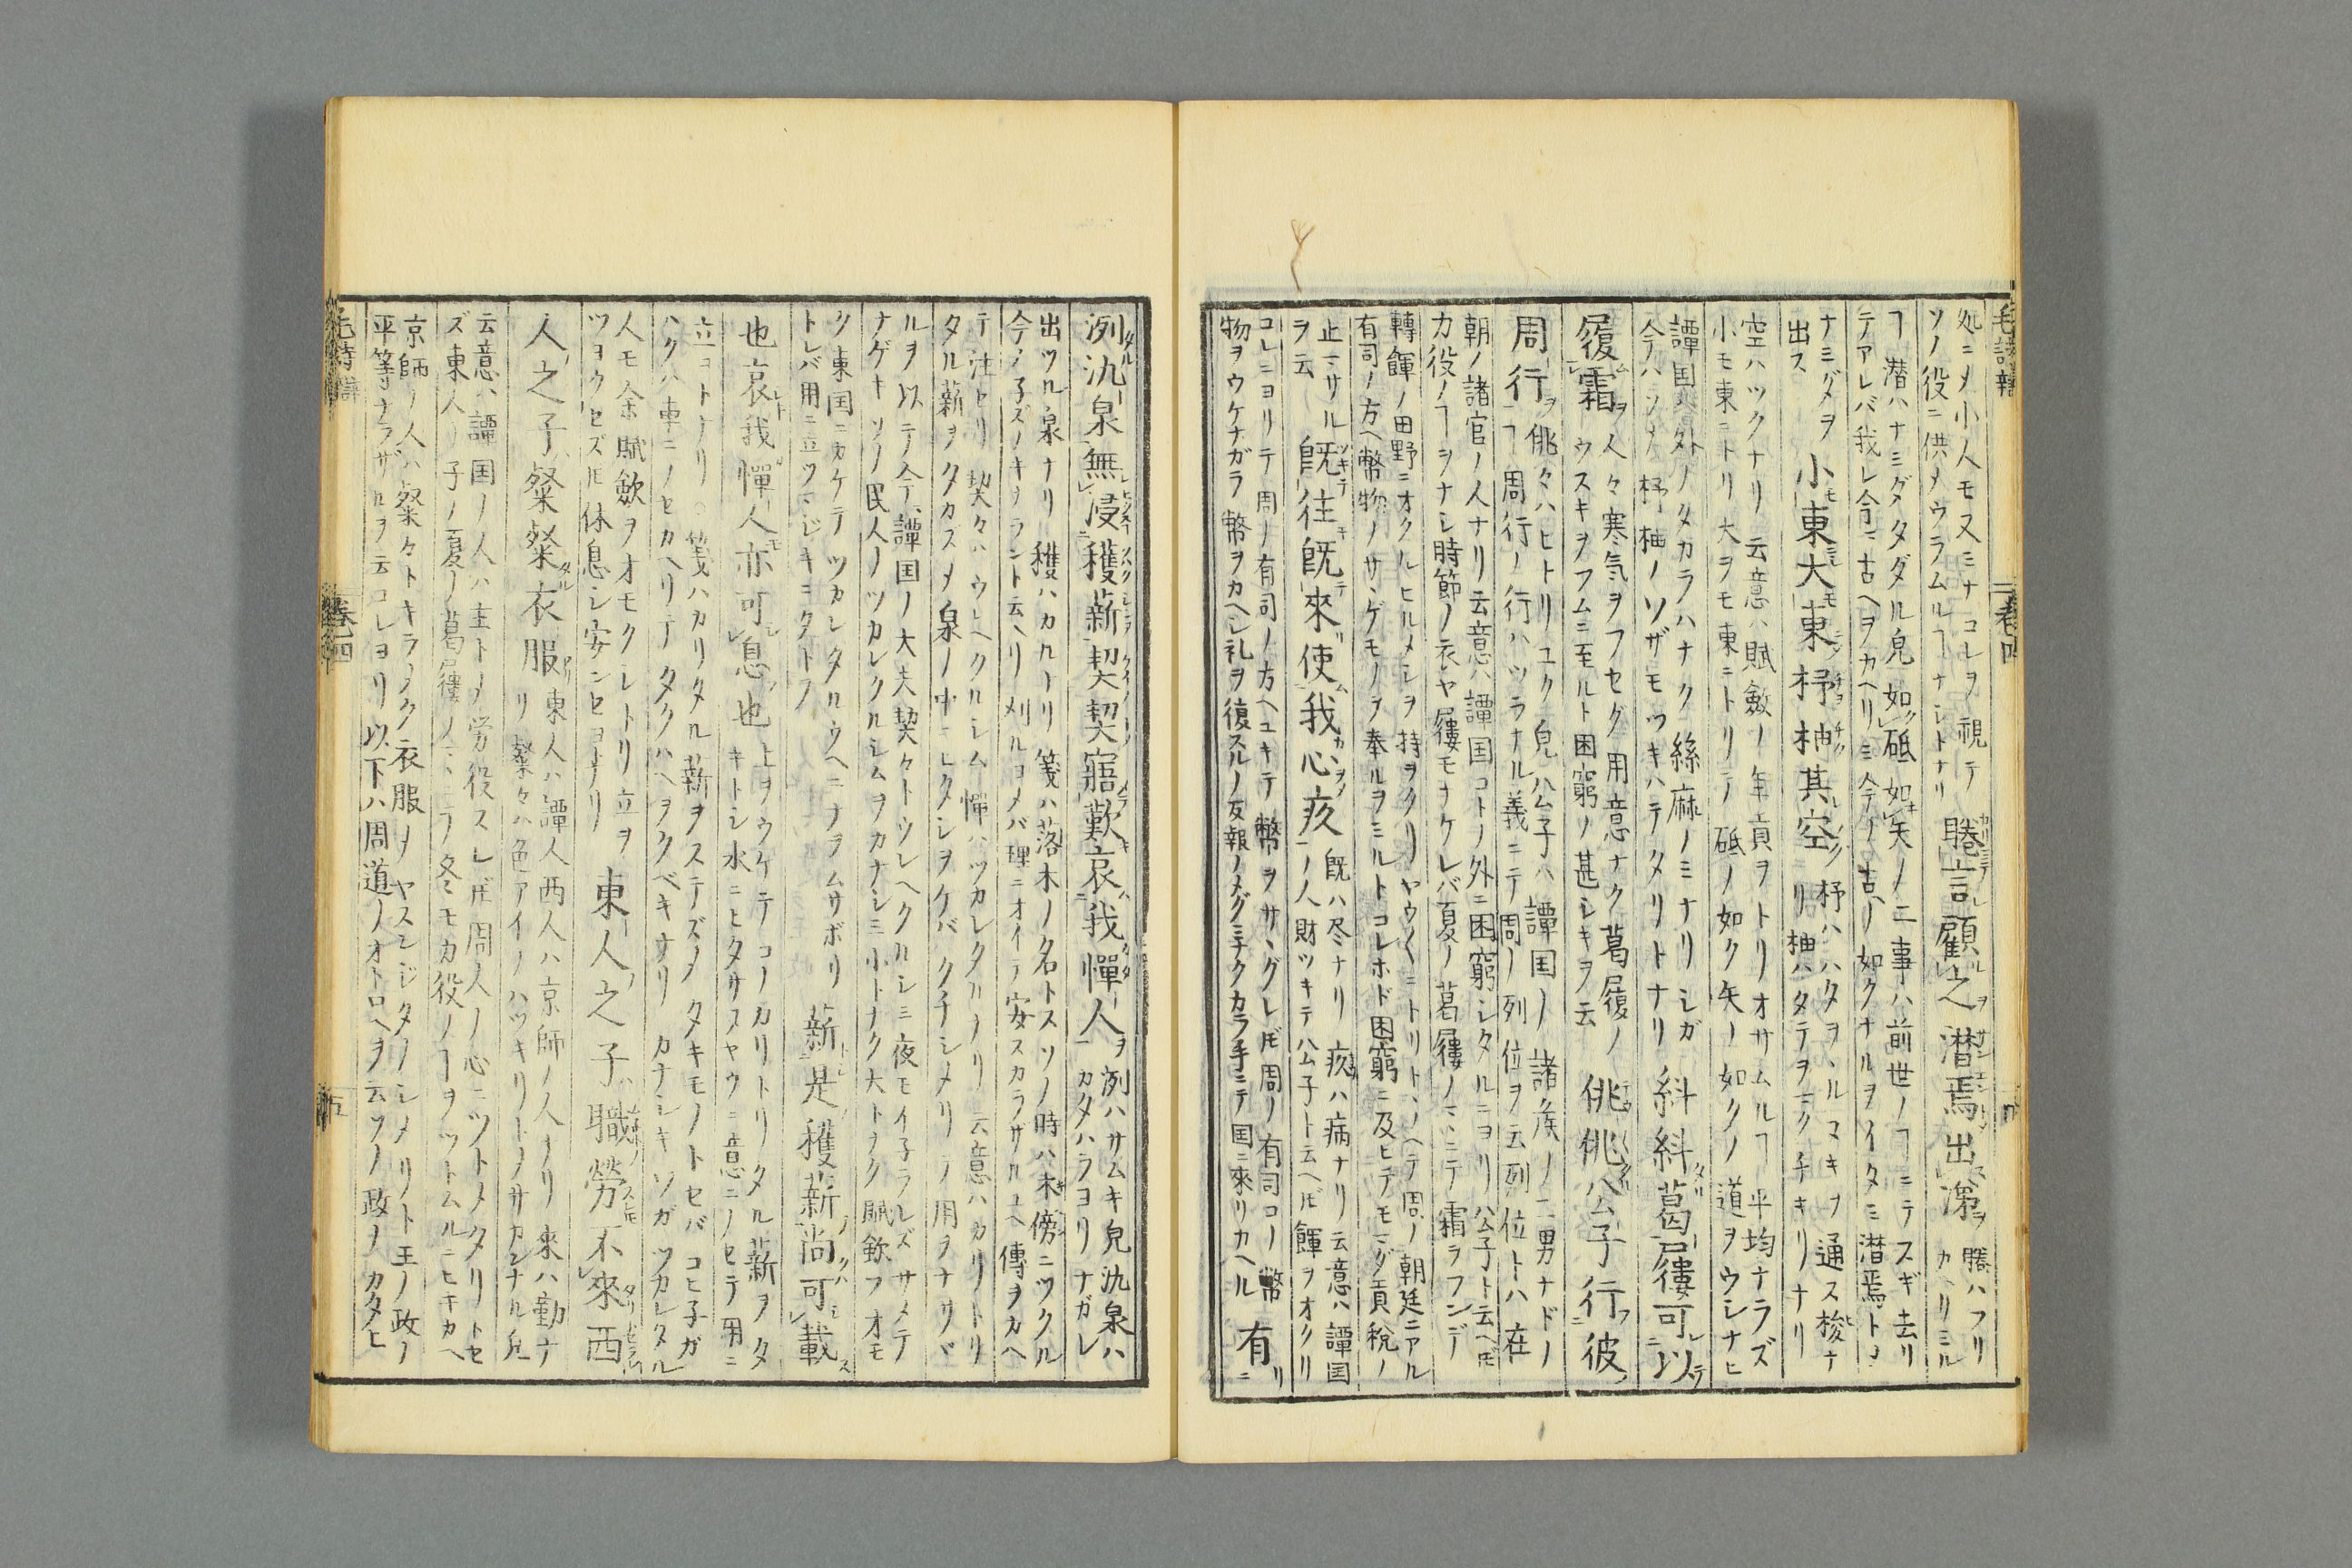 処ニメ小人モ又ミナコレヲ視テ
ソノ役ニ供メウラムルヿナシトナリ
睠言顧之潜焉出涕
睠ハフリ
カヘリミル
ヿ潜ハナミダタダル皃如砥如矢ノ二事ハ前世ノヿニテスギ去リ
テアレバ我レ今ニ古ヘヲカヘリミ今ノ古ヘノ如クナルヲイタミ潜焉ト〆
ナミダヲ
出ス
小東大東杼柚其空
杼ハハタヲヽルマキヲ通ス梭ナ
リ柚ハタテヲマクチキリナリ
空ハツクナリ云意ハ賦斂ノ年貢ヲトリオサムルヿ平均ナラズ
小モ東ニトリ大ヲモ東ニトリテ砥ノ如ク矢ノ如クノ道ヲウシナヒ
譚国外ノタカラハナク絲麻ノミナリシガ
今ハソノ杼柚ノソザモツキハテタリトナリ
糾糾葛屨可以
履霜
人々寒気ヲフセグ用意ナク葛履ノ
ウスキヲフムニ至ルト困窮ノ甚シキヲ云
佻佻公子行彼
周行
佻々ハヒトリユク皃公子ハ譚国ノ諸侯ノ二男ナドノ
ヿ周行ノ行ハツラナル義ニテ周ノ列位ヲ云列位トハ在
朝ノ諸官ノ人ナリ云意ハ譚国コトノ外ニ困窮シタルニヨリ公子ト云ヘ𪜈
カ役ノヿヲナシ時節ノ衣ヤ屨モナケレバ夏ノ葛屨ノミニテ霜ヲフンデ
轉餫ノ田野ニオクルヒルメシヲ持ヲクリヤウ〱ニトリトヽノヘテ周ノ朝廷ニアル
有司ノ方ヘ幣物ノサヽゲモノヲ奉ルヲミルトコレホド困窮ニ及ヒテモマダ貢税ノ
止マサル
ヲ云
既往既來使我心疚
既ハ尽ナリ疚ハ病ナリ云意ハ譚国
ノ人財ツキテ公子ト云ヘ𪜈餫ヲオクリ
コレニヨリテ周ノ有司ノ方ヘユキテ幣ヲサヽグレ𪜈周ノ有司コノ幣
物ヲウケナガラ幣ヲカヘシ礼ヲ復スルノ反報ノメグミナクカラ手ニテ国ニ來リカヘル
有
冽氿泉無浸穫薪契契寤歎哀我憚人
冽ハサムキ皃氿泉ハ
カタハラヨリナガレ
出ツル泉ナリ穫ハカルナリ箋ハ落木ノ名トスソノ時ハ木傍ニツクル
今ノ子ズノキナラント云ヘリ刈ルヨメバ理ニオイテ安スカラザルユヘ傳ヲカヘ
テ注セリ契々ハウレヘクルシム憚ハツカレタルナリ云意ハカリトリ
タル薪ヲタカズメ泉ノ中ニヒタシヲケバクチシメリテ用ヲナサヾ
ルヲ以テ今譚国ノ大夫契々トウレヘクルシミ夜モイ子ラレズサメテ
ナゲキソノ民人ノツカレクルシムヲカナシミ小トナク大トナク賦斂ヲオモ
ク東国ニカケテツカレタルウヘニナヲムサボリ
トレバ用ニ立ツマジキニタトフ
薪是穫薪尚可載
也哀我憚人亦可息也
上ヲウケテコノカリトリタル薪ヲタ
キトシ水ニヒタサスヤウニ意ニノセテ用ニ
立ヨトナリ○箋ハカリタル薪ヲステズメタキモノトセバコヒ子ガ
ハクハ車ニノセカヘリテタクハヘヲクベキナリカナシキソガツカレタル
人モ余賦斂ヲオモクシトリ立ヲ
ツヨウセズ𪜈休息シ安ンセヨナリ
東人之子職勞不來西
人之子粲粲衣服
東人ハ譚人西人ハ京師ノ人ナリ來ハ勤ナ
リ粲々ハ色アイノハツキリトノサカンナル皃
云意ハ譚国ノ人ハ主トメ労役スレ𪜈周人ノ心ニツトメタリトセ
ズ東人ノ子ノ夏ノ葛屨ノミニテ冬モカ役ノヿヲツトムルニヒキカヘ
京師ノ人ハ粲々トキラメク衣服ヲヤスンジタノシメリト王ノ政ノ
平等ナラザルヲ云コレヨリ以下ハ周道ノオトロヘヲ云ソノ政ノカタヒ
毛詩
卷四
五